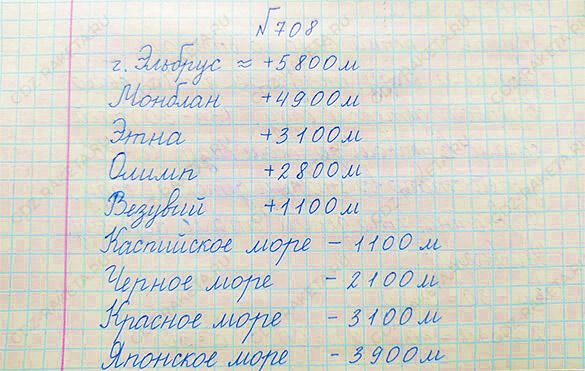 №708
г. Эльбрус ≈ +5800м
Монблан +4900м
Этна +3100м
Олимп +2800м
Везувий +1100м
Каспийское море - 1100 м
Черное море - 2100м
Красное море - 3100м
Японское море - 3900м